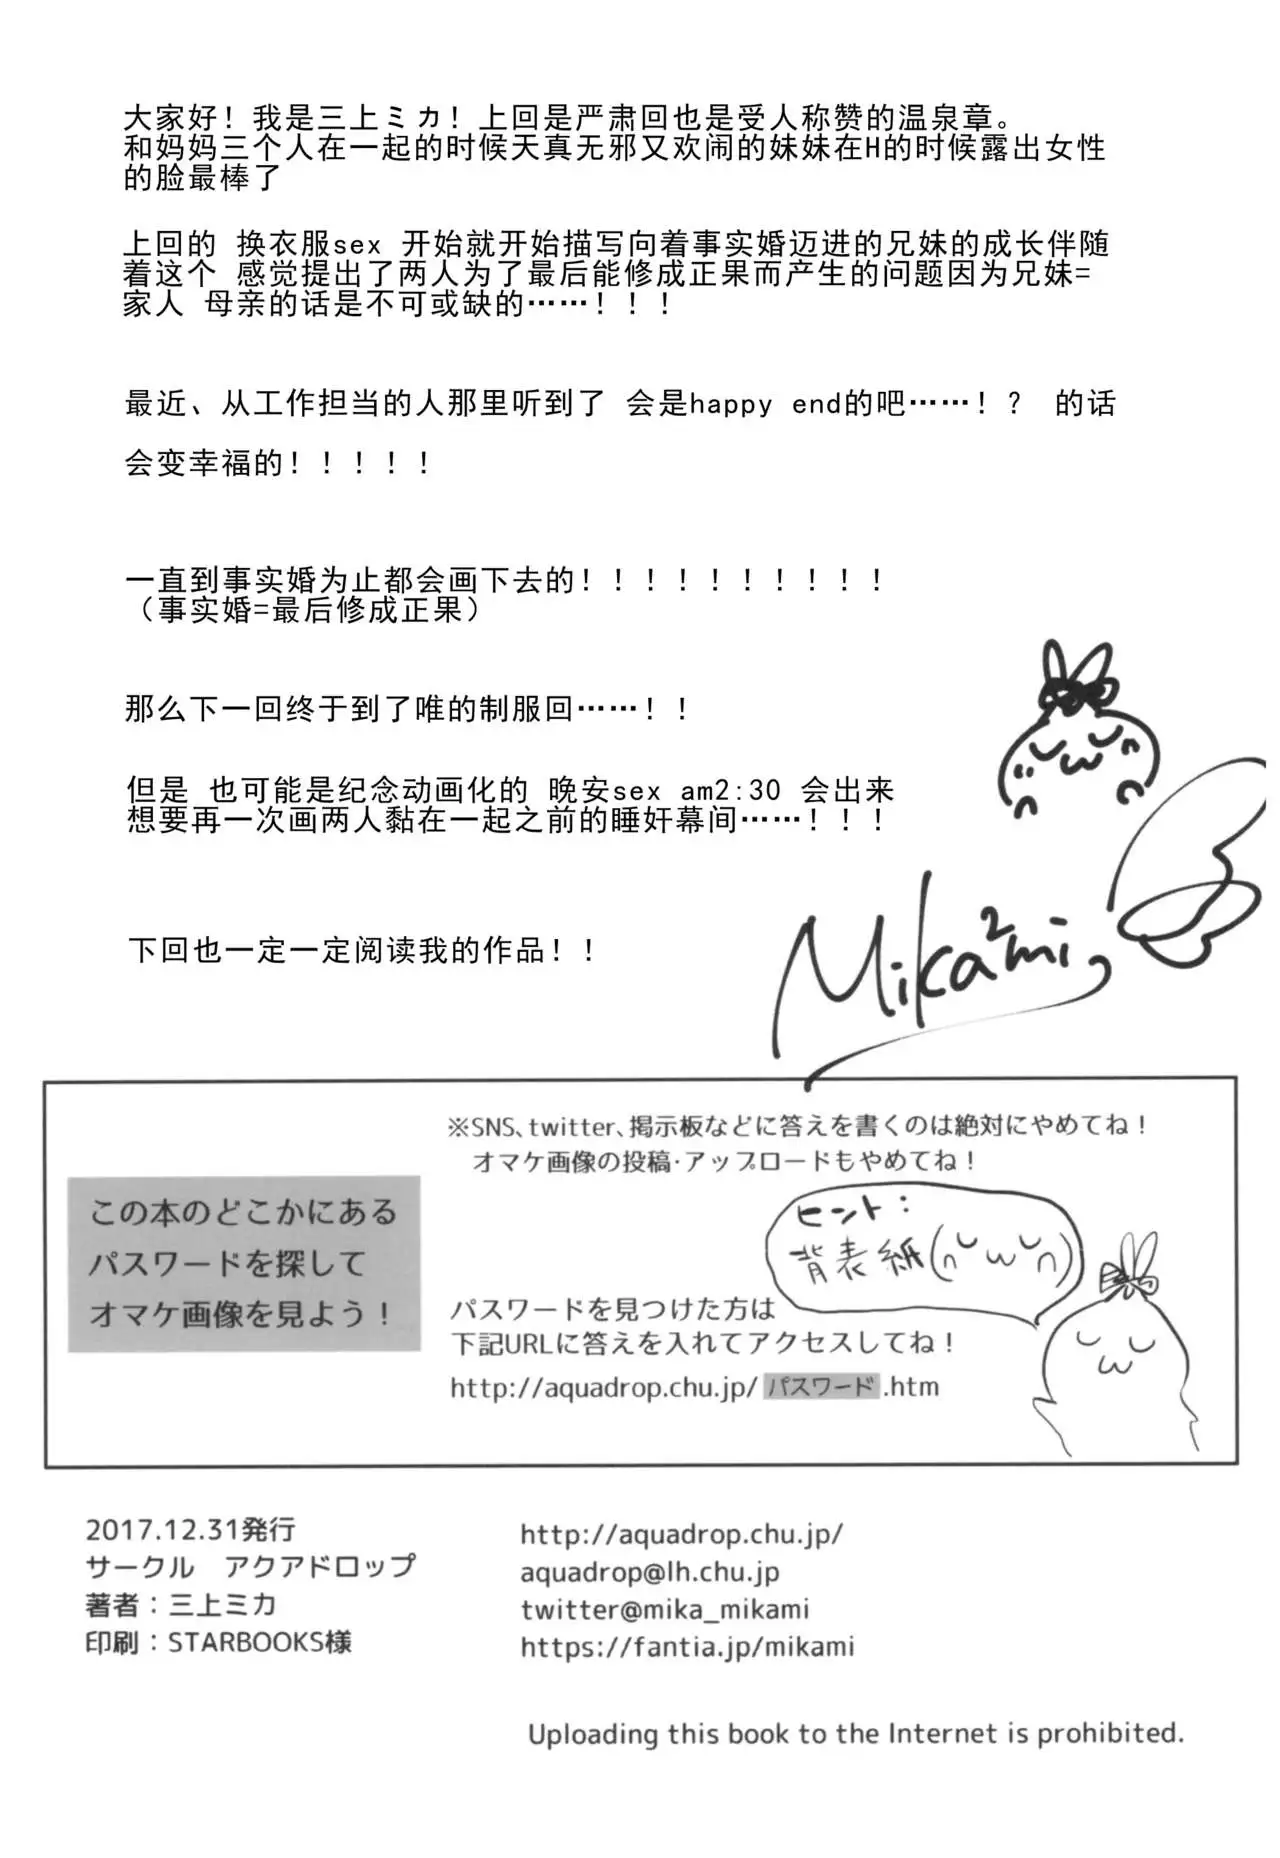 大家好！我是三上ミカ！上回是严肃回也是受人称赞的温泉章。
和妈妈三个人在一起的时候天真无邪又欢闹的妹妹在H的时候露出女性
的脸最棒了
上回的 换衣服sex 开始就开始描写向着事实婚迈进的兄妹的成长伴随
着这个 感觉提出了两人为了最后能修成正果而产生的问题因为兄妹=
家人 母亲的话是不可或缺的……！！！
最近、从工作担当的人那里听到了 会是happy end的吧……！？ 的话
会变幸福的！！！！！
一直到事实婚为止都会画下去的！！！！！！！！！！
（事实婚=最后修成正果）
那么下一回终于到了唯的制服回……！！
但是 也可能是纪念动画化的 晚安sex am2:30 会出来
想要再一次画两人黏在一起之前的睡奸幕间……！！！
下回也一定一定阅读我的作品！！
Mika2mi
※SNS、twitter、掲示板などに答えを書くのは絶対にやめてね！
オマケ画像の投稿・アップロードもやめてね！
この本のどこかにある
パスワードを探して
オマケ画像を見よう！
ヒント：
背表紙(∩◡ω◡∩)
パスワードを見つけた方は
下記URLに答えを入れてアクセスしてね！
http://aquadrop.chu.jp/パスワード.htm
2017.12.31発行
サークル　アクアドロップ
著者：三上ミカ
印刷：STARBOOKS様
http://aquadrop.chu.jp/
aquadrop@lh.chu.jp
twitter@mika_mikami
https://fantia.jp/mikami
Uploading this book to the Internet is prohibited.